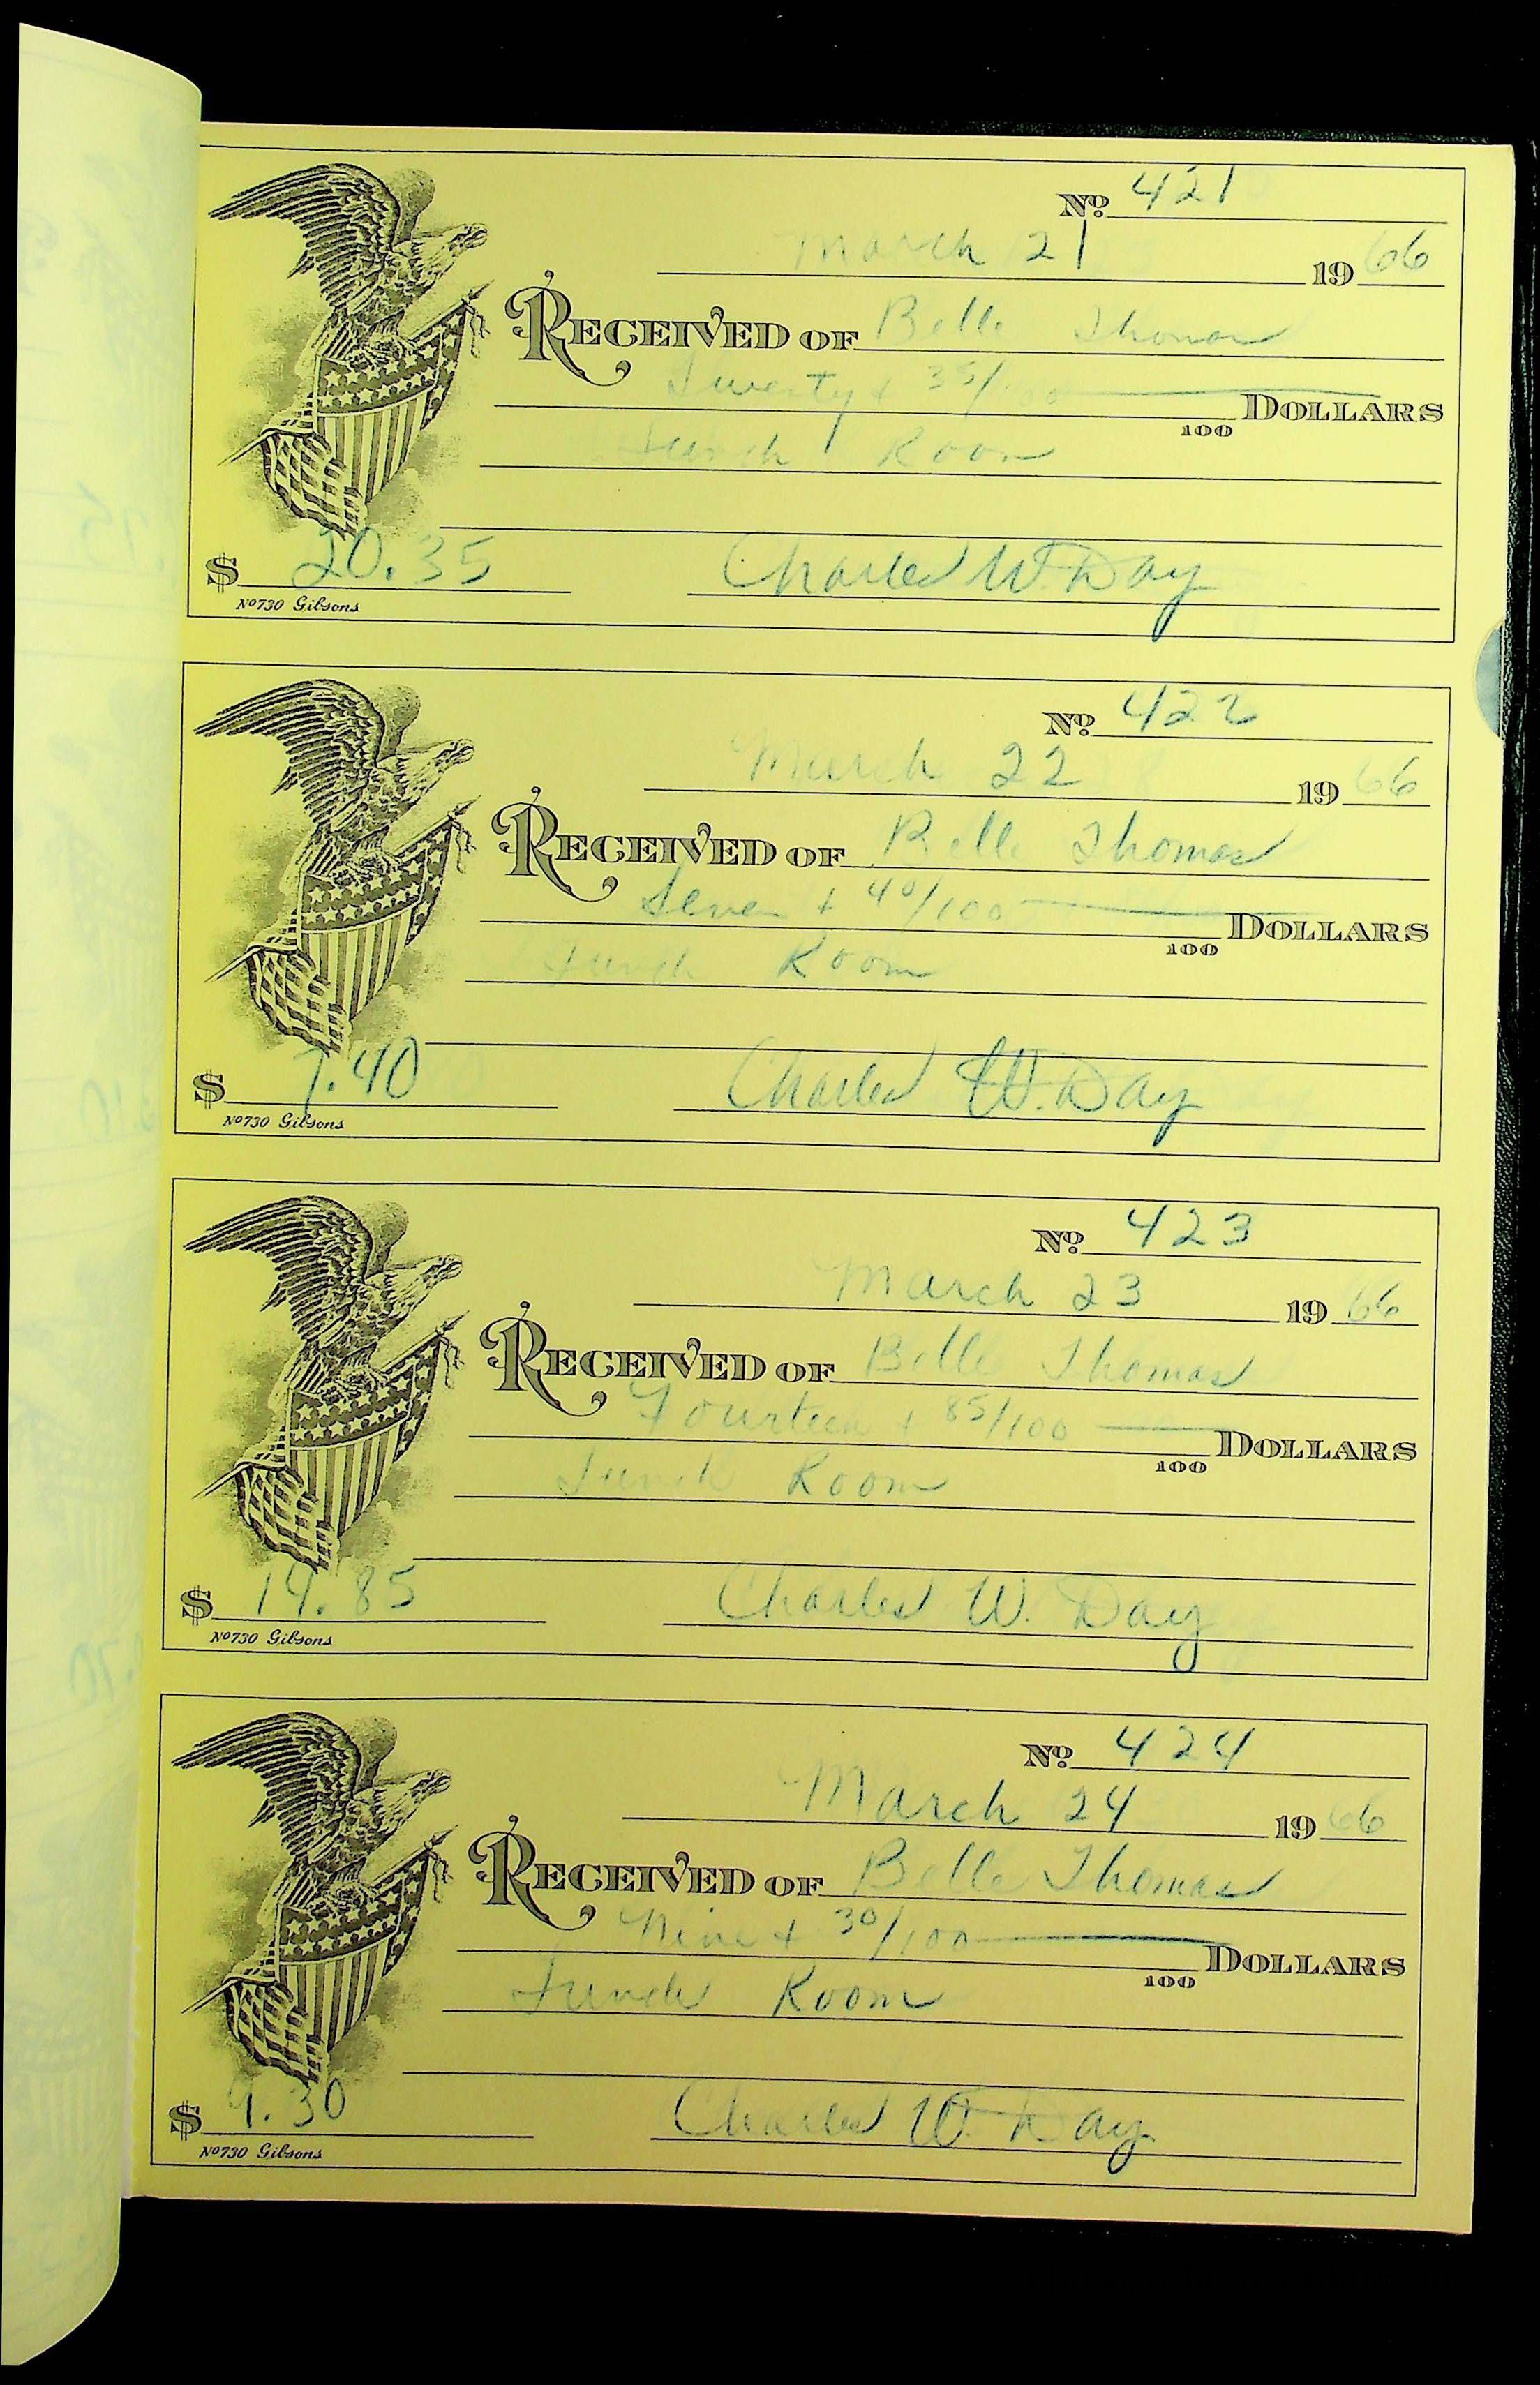 Nº 421
March 21 1966
RECEIVED OF Belle Thomas
Twenty + 35/100 DOLLARS
100
Lunch Room
$ 20.35 Charles W. Day
Nº730 Gibsons
Nº 422
March 22 1966
RECEIVED OF Belle Thomas
Seven + 40/100 DOLLARS
100
Lunch Room
$ 7.40 Charles W. Day
Nº730 Gibsons
Nº 423
March 23 1966
RECEIVED OF Belle Thomas
Fourteen + 85/100 DOLLARS
100
Lunch Room
$ 14.85 Charles W. Day
Nº730 Gibsons
Nº 424
March 24 1966
RECEIVED OF Belle Thomas
Nine + 30/100 DOLLARS
100
Lunch Room
$ 9.30 Charles W. Day
Nº730 Gibsons